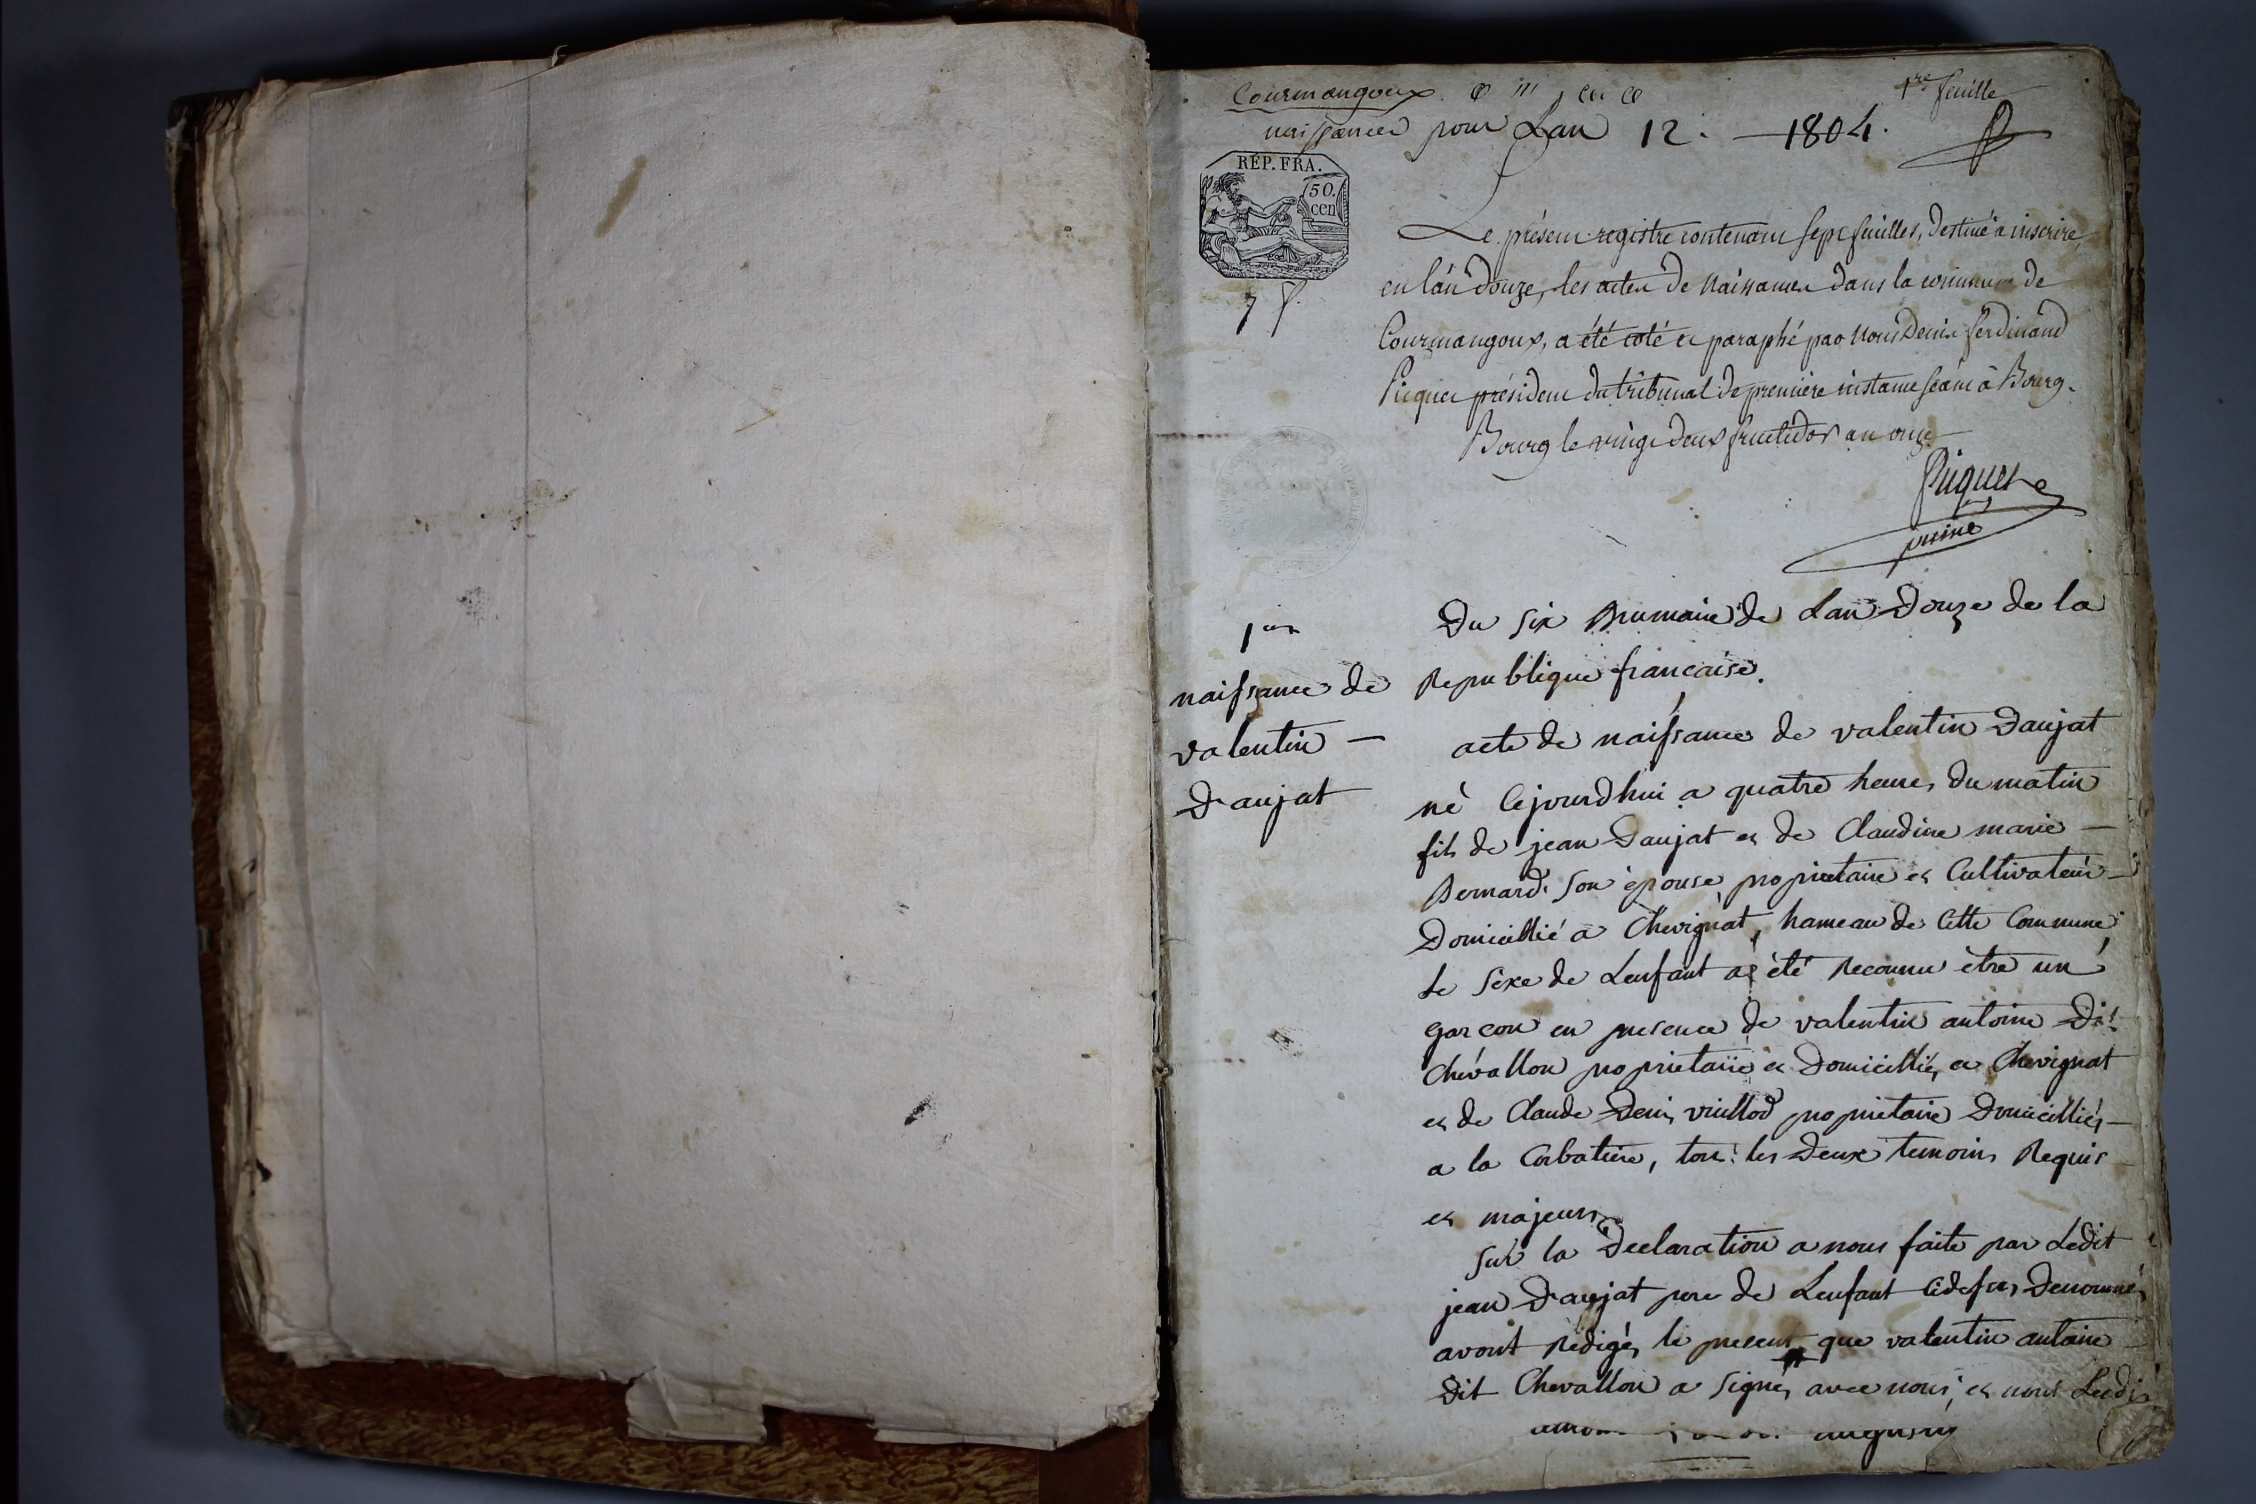 Courmangoux
1re feuille
naissances pour Lan 12. — 1804.
RÉP. FRA.
50.
cen
7 f.
Le présent registre contenant sept feuilles, destiné à inscrire,
en l'an douze, les actes de Naissances dans la commune de
Courmangoux, a été coté et paraphé par Nous Denis ferdinand
Picquet président du tribunal de première instance séant à Bourg.
Bourg le vingt deux fructidor an onze
Picquet
1er
naissance de
valentin —
Daujat
Du six Brumaire de Lan Douze de la
Republique francaise.
acte de naissance de valentin Daujat
né Cejourdhui a quatre heures du matin
fils de jean Daujat et de Claudine marie —
Bernard son épouse propriétaire et Cultivateur —
Domicillié a Chevignat, hameau de Cette Commune
le sexe de Lenfant a été Reconnu être un
garcon en presence de valentin antoine Dit
Chévallon proprietaire et Domicillié a Chevignat
et de Claude Denis vuillod proprietaire Domicilliés —
a la Corbatiere, tous les Deux temoins Requis
et majeurs
sur la Declaration a nous faite par Ledit
jean Daujat pere de Lenfant Cidessus Denommé
avont Rédigés le present que valentin antoine
Dit Chevallon a signés avec nous, et non Ledit